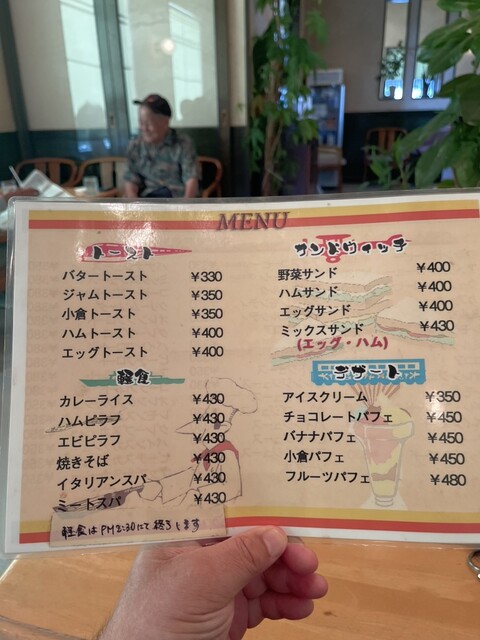 MENU
トースト
バタートースト ¥330
ジャムトースト ¥350
小倉トースト ¥350
ハムトースト ¥400
エッグトースト ¥400
軽食
カレーライス ¥430
ハムピラフ ¥430
エビピラフ ¥430
焼きそば ¥430
イタリアンスパ ¥430
ミートスパ ¥430
軽食はPM2:30にて終ります
サンドウィッチ
野菜サンド ¥400
ハムサンド ¥400
エッグサンド ¥400
ミックスサンド ¥430
(エッグ・ハム)
デザート
アイスクリーム ¥350
チョコレートパフェ ¥450
バナナパフェ ¥450
小倉パフェ ¥450
フルーツパフェ ¥480